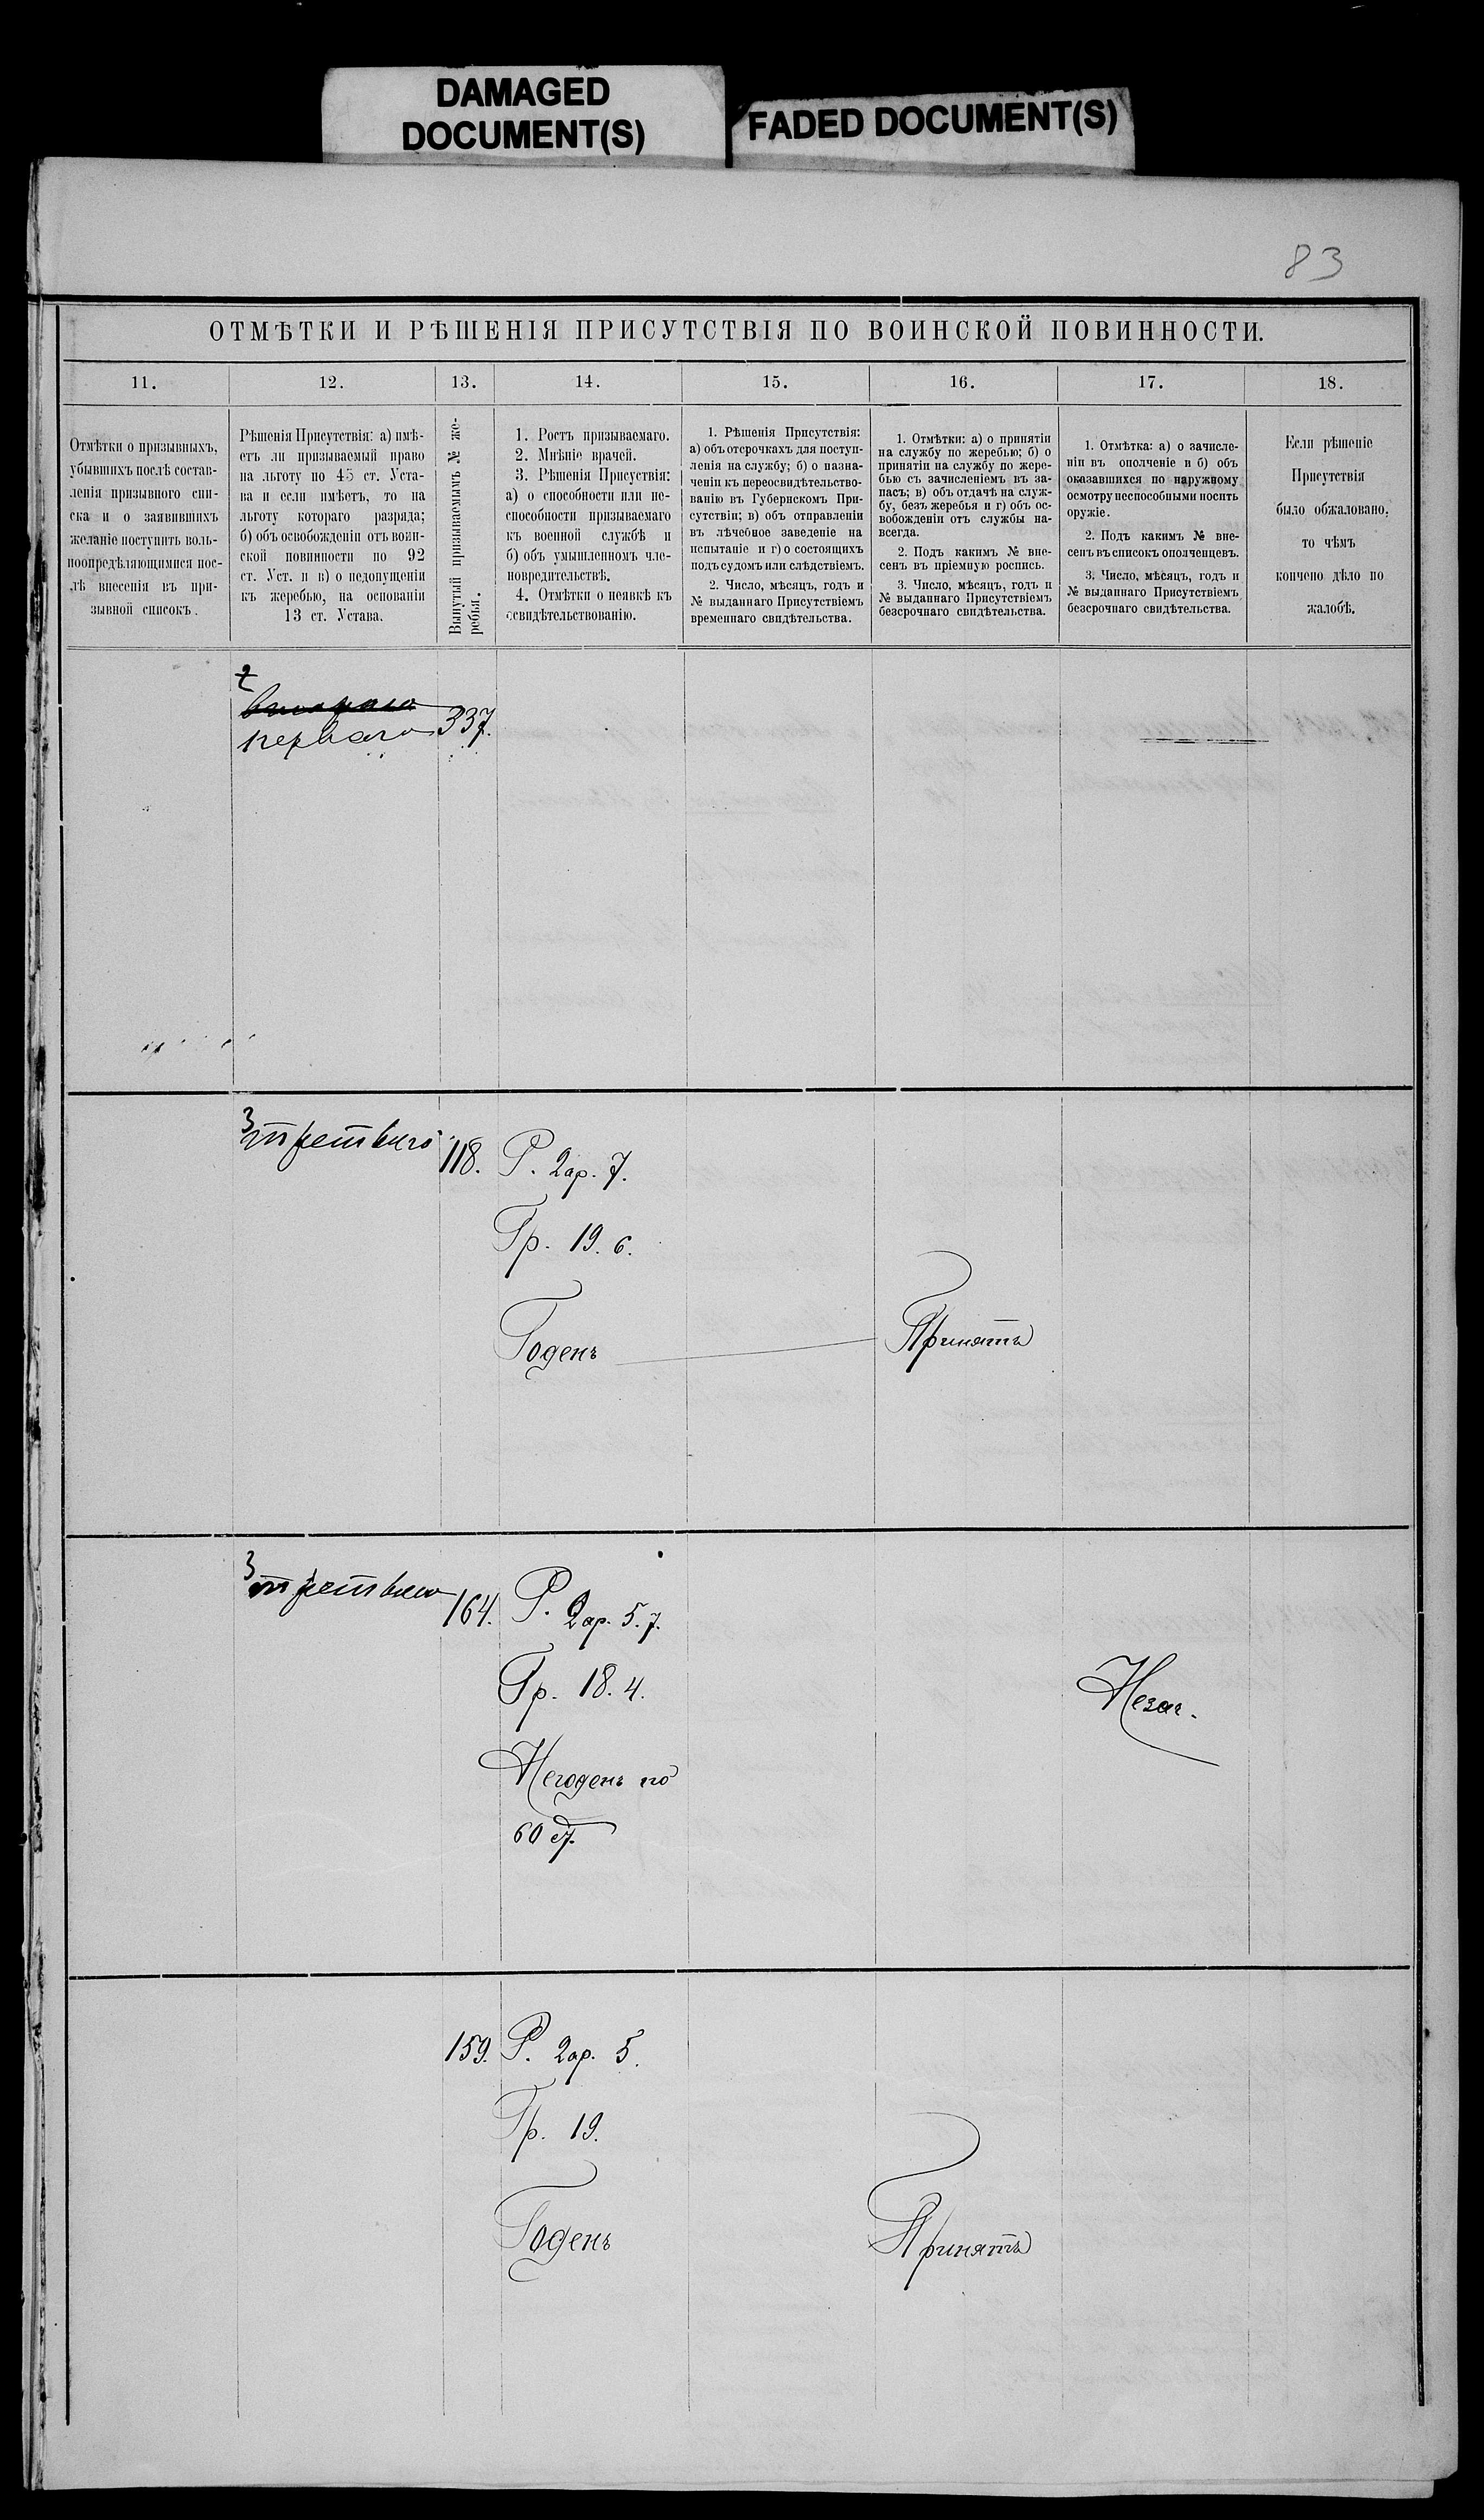 DAMAGED
DOCUMENT(S)
FADED DOCUMENT(S)
83
ОТМѢТКИ И РѢШЕНІЯ ПРИСУТСТВІЯ ПО ВОИНСКОЙ ПОВИННОСТИ.
11.
12.
13.
14.
15.
16.
17.
18.
Отмѣтки о призывныхъ,
убывшихъ послѣ состав-
ленія призывного спи-
ска и о заявившихъ
желаніе поступить воль-
ноопредѣляющимися пос-
лѣ внесенія въ при-
зывной списокъ.
Рѣшенія Присутствія: а) имѣ-
етъ ли призываемый право
на льготу по 45 ст. Уста-
ва и если имѣетъ, то на
льготу котораго разряда;
б) объ освобожденіи отъ воин-
ской повинности по 92
ст. Уст. и в) о недопущеніи
къ жеребью, на основаніи
13 ст. Устава.
Вынутый призываемымъ № же-
ребья.
1. Ростъ призываемаго.
2. Мнѣніе врачей.
3. Рѣшенія Присуствія:
а) о способности или не-
способности призываемаго
къ военной службѣ и
б) объ умышленномъ чле-
новредительствѣ.
4. Отмѣтки о неявкѣ къ
освидѣтельствованію.
1. Рѣшенія Присутствія:
а) объ отсрочкахъ для поступ-
ленія на службу; б) о назна-
ченіи къ переосвидѣтельство-
ванію въ Губернскомъ При-
сутствіи; в) объ отправленіи
въ лѣчебное заведеніе на
испытаніе и г) о состоящихъ
подъ судомъ или слѣдствіемъ.
2. Число, мѣсяцъ, годъ и
№ выданнаго Присутствіемъ
временнаго свидѣтельства.
1. Отмѣтки: а) о принятіи
на службу по жеребью; б) о
принятіи на службу по жере-
бью съ зачисленіемъ въ за-
пасъ; в) объ отдачѣ на служ-
бу, безъ жеребья и г) объ ос-
вобожденіи отъ службы на-
всегда.
2. Подъ какимъ № вне-
сенъ въ пріемную роспись.
3. Число, мѣсяцъ, годъ и
№ выданнаго Присутствіемъ
безсрочнаго свидѣтельства.
1. Отмѣтка: а) о зачисле-
ніи въ ополченіе и б) объ
оказавшихся по наружному
осмотру неспособными носить
оружіе.
2. Подъ какимъ № вне-
сенъ въ списокъ ополченцевъ.
3. Число, мѣсяцъ, годъ и
№ выданнаго Присутствіемъ
безсрочнаго свидѣтельства.
Если рѣшеніе
Присутствія
было обжаловано,
то чѣмъ
кончено дѣло по
жалобѣ.
2
втораго
перваго 337.
3
третьяго 118. Р. 2 ар. 7.
Гр. 19. 6.
Годенъ Принятъ
3
третьяго 164. Р. 2 ар. 5. 7.
Гр. 18. 4.
Незач.
Негоденъ по
60 ст.
159. Р. 2 ар. 5.
Гр. 19.
Годенъ Принятъ